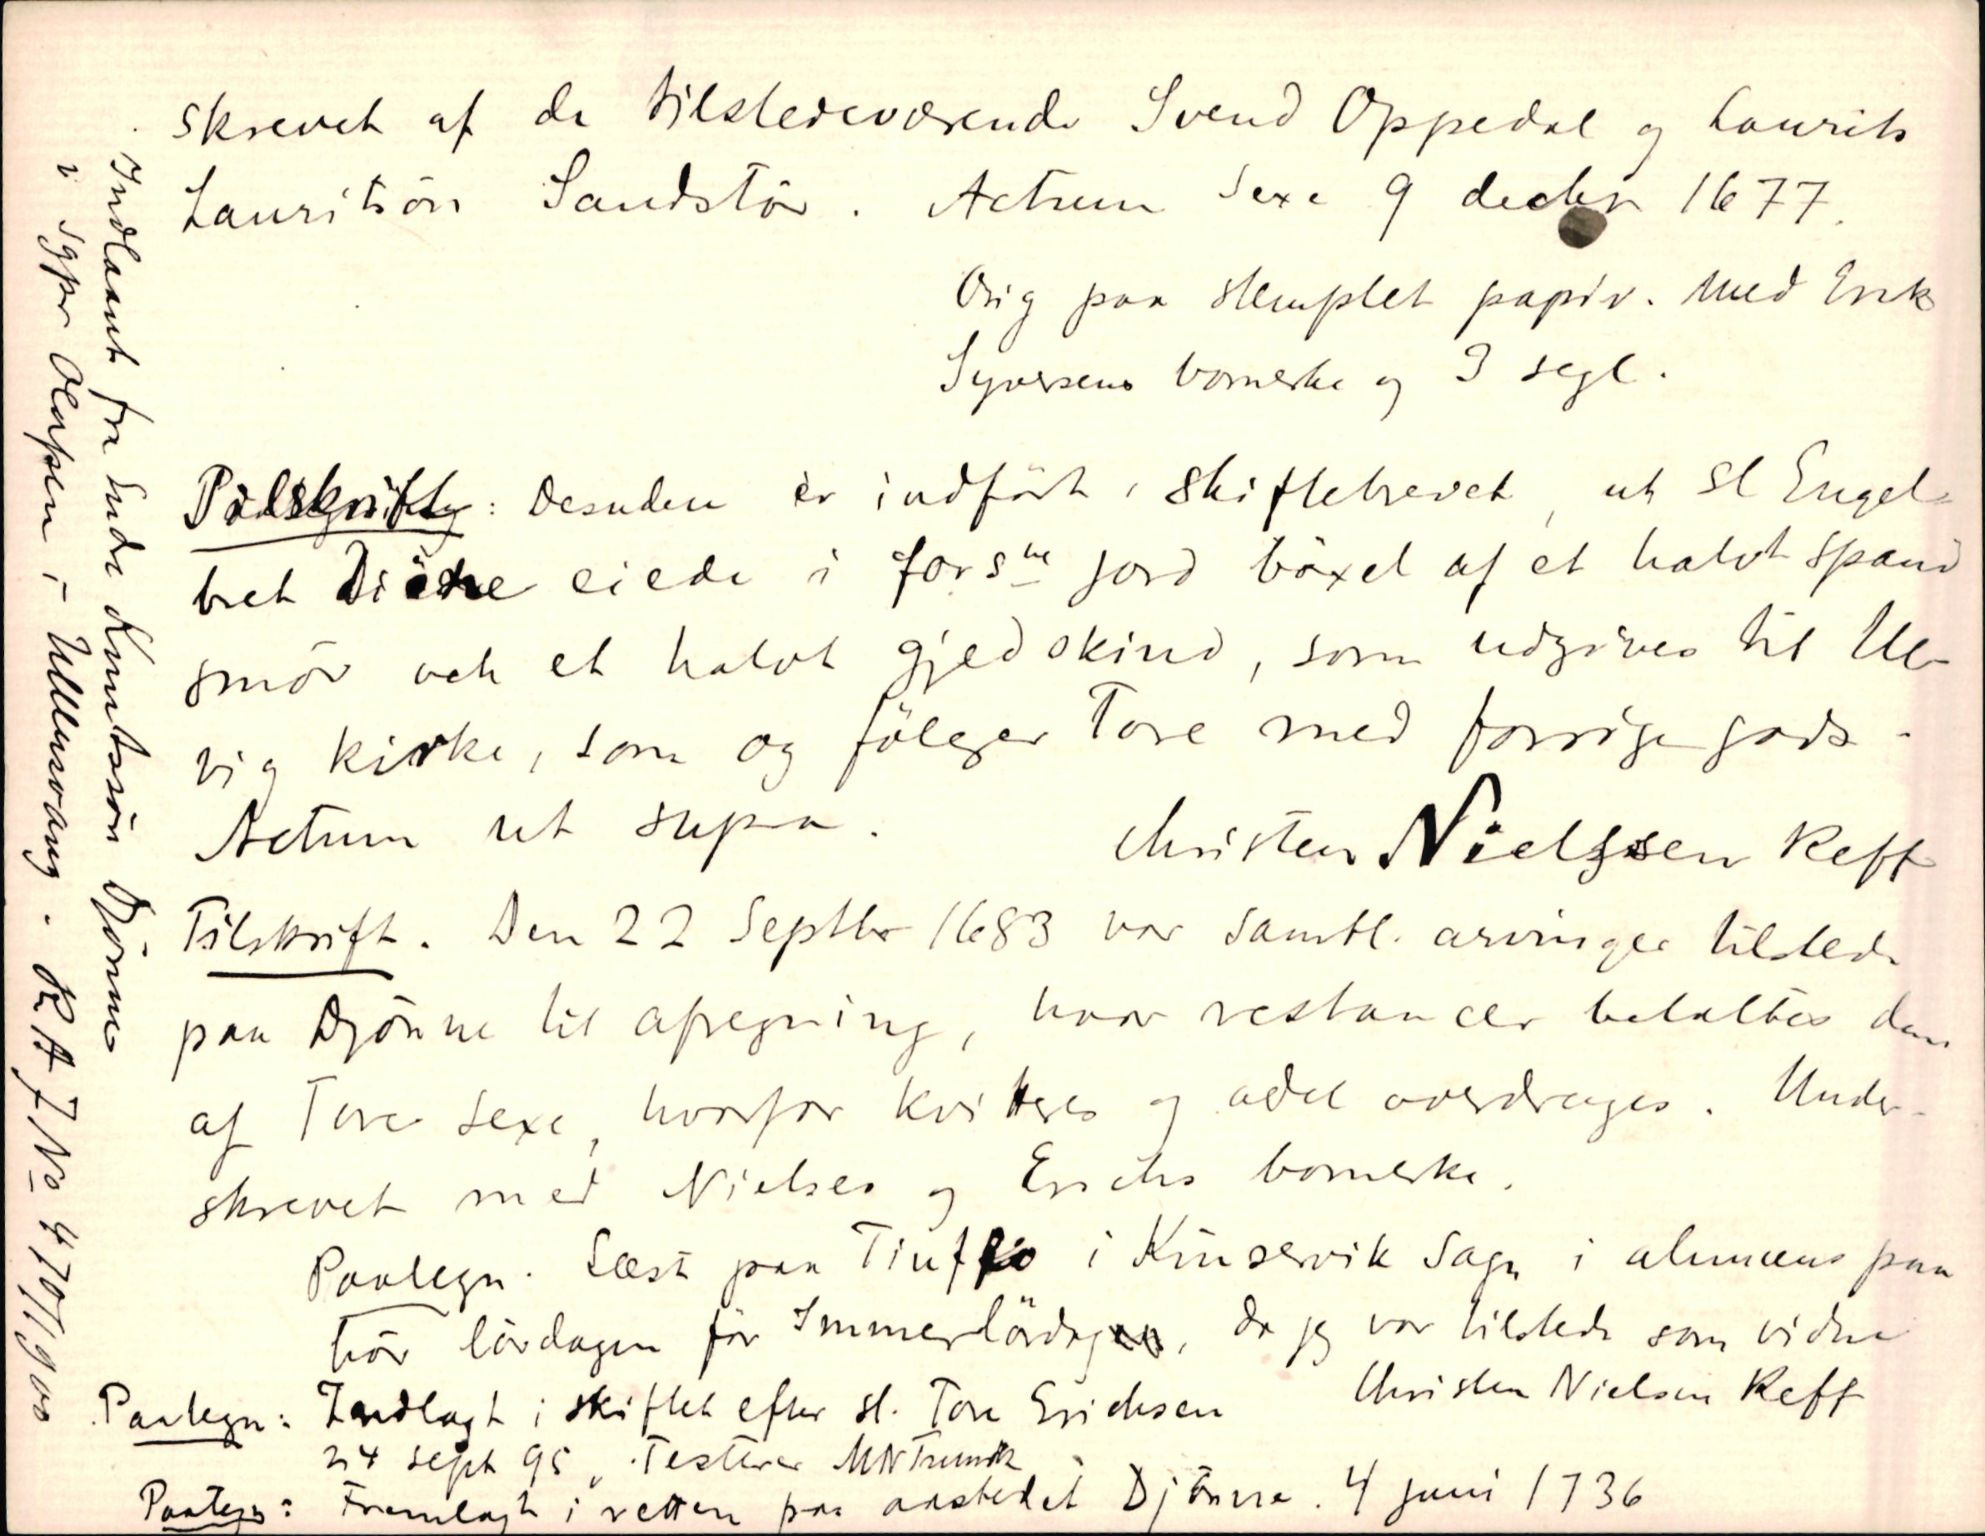 skrevet af de tilstedeværende Svend Oppedal og Laurits
Lauritsön Sandstör. Actum Sexe 9 decbr 1677.
Orig paa stemplet papir. Med Erik
Syversens bomerke og 3 segl.
Påskrift: Desuden er indfört i skiftebrevet, at Sl Engel-
bret Diöne eiede i fors ne jord böxel af et halvt spand
smör och et halvt gjedskind, som udgives til Ul-
vig kirke, som og fölger Tore med forrige gods.
Actum ut supra. Christen Nielssen Reff
Tilskrift. Den 22 Septbr 1683 var samtl. arvinger tilstede
paa Djönne til afregning, hvor restancer betaltes dem
af Tore Sexe, hvorfor kvitteres og odel overdrages. Under-
skrevet med Nielses og Erichs bomerke.
Paategn. Læst paa i Kinservik Sogn i almuens paa
hör lördagen för Immerlördagen, da jeg var tilstede som vidne
Christen Nielsen Reff
Paategn: Indlagt i skiftet efter sl. Tore Erichsen
24 sept 95, Testerer
Paategn: Fremlagt i retten paa aastedet Djönne. 4 juni 1736
Indlaant fra Endre Knutsön Djönne
i Sgpr Olafsen i Ullensvang. RA J No 470/1900